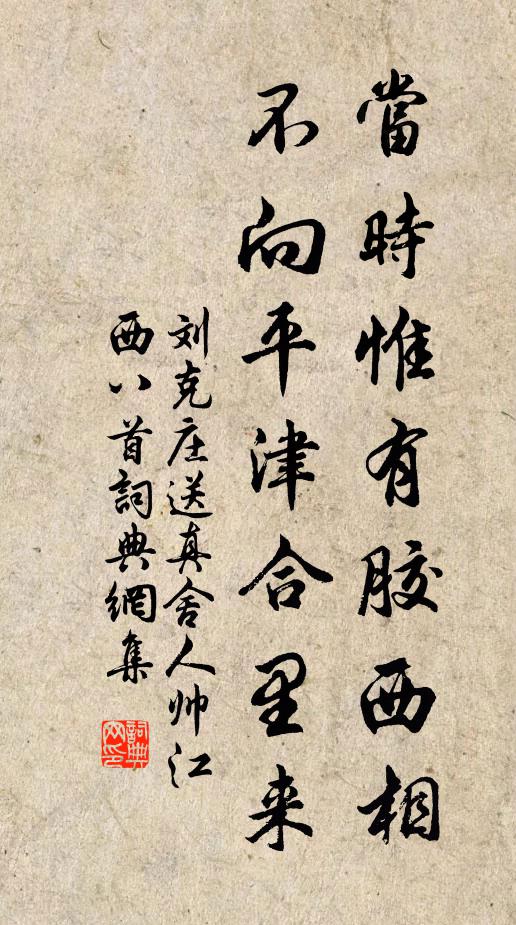 當時惟有胶西相
不向平津合里来
刘克庄送真舍人帅江
西八首詞典網集
詞典网印